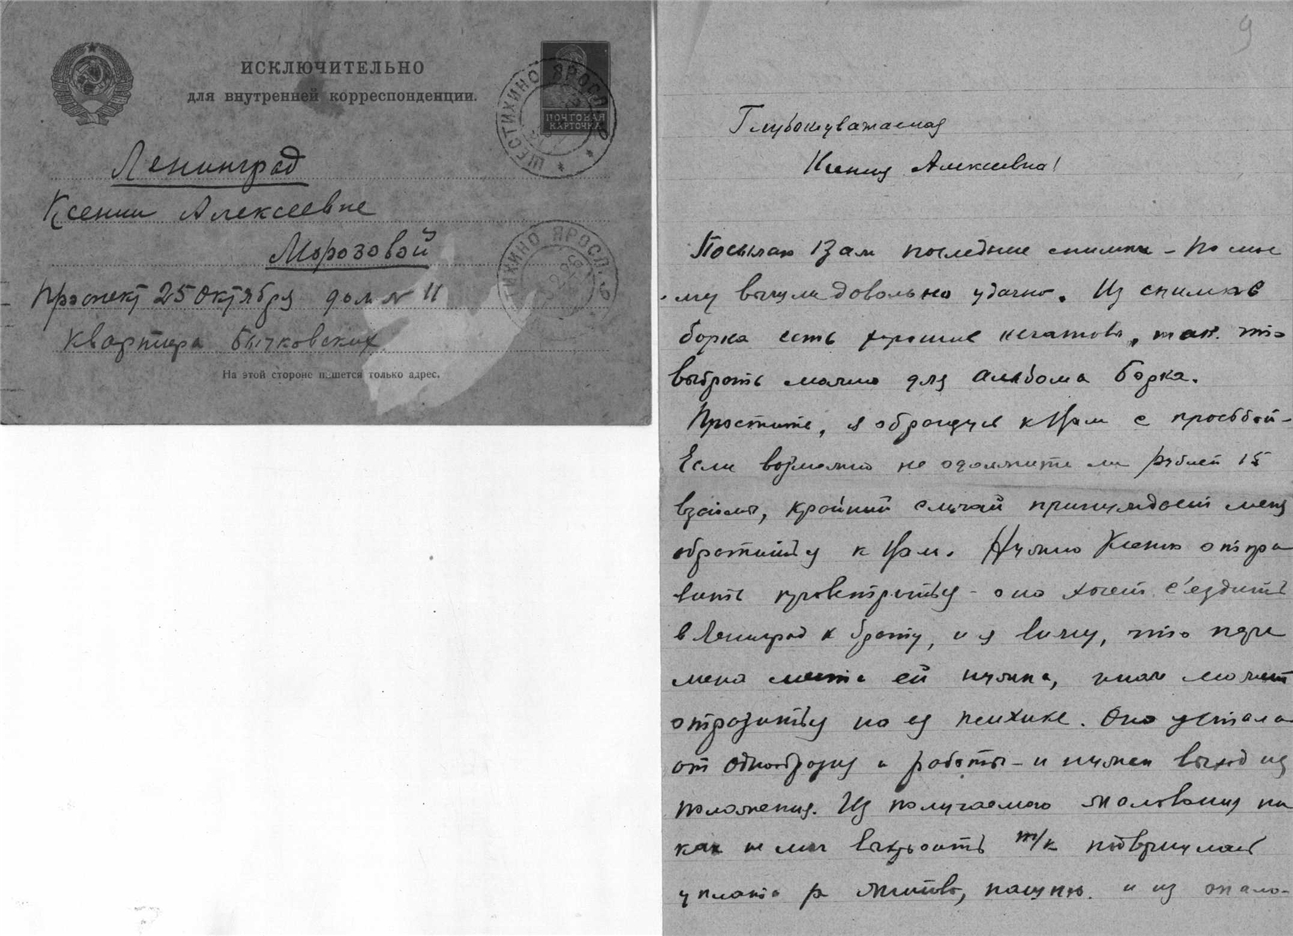 ИСКЛЮЧИТЕЛЬНО
для внутренней корреспонденции.
ПОЧТОВАЯ
КАРТОЧКА
ШЕСТИХИНО ЯРОСЛ. Р
Ленинград
Ксении Алексеевне
Морозовой
Проспект 25 Октября дом № 11
квартира Бычковских
На этой стороне пишется только адрес.
ТИХИНО ЯРОСЛ.
9
Глубокуважаемая
Ксения Алексеевна!
Посылаю Вам последние снимки - по мое
му вышли довольно удачно. Из снимков
борка есть хорошие негативы, так что
выбрать можно для альбома борка.
Простите, я обращуся к Вам с просьбой -
Если возможно не одолжите ли рублей 15
взаймы, крайний случай принуждает меня
обратиться к Вам. Нужно Ксению отпра
вить проветриться - она хочет съездить
в Ленинград к брату, и я вижу, что пере
мена места ей нужна, иначе может
отразиться на ея психике. Она устала
от однообразия и работы - и нужен выход из
положения. Из получаемого жалования ни
как не могу выкроить т/к подвернулась
уплата за жнитво, пашню и из жало-